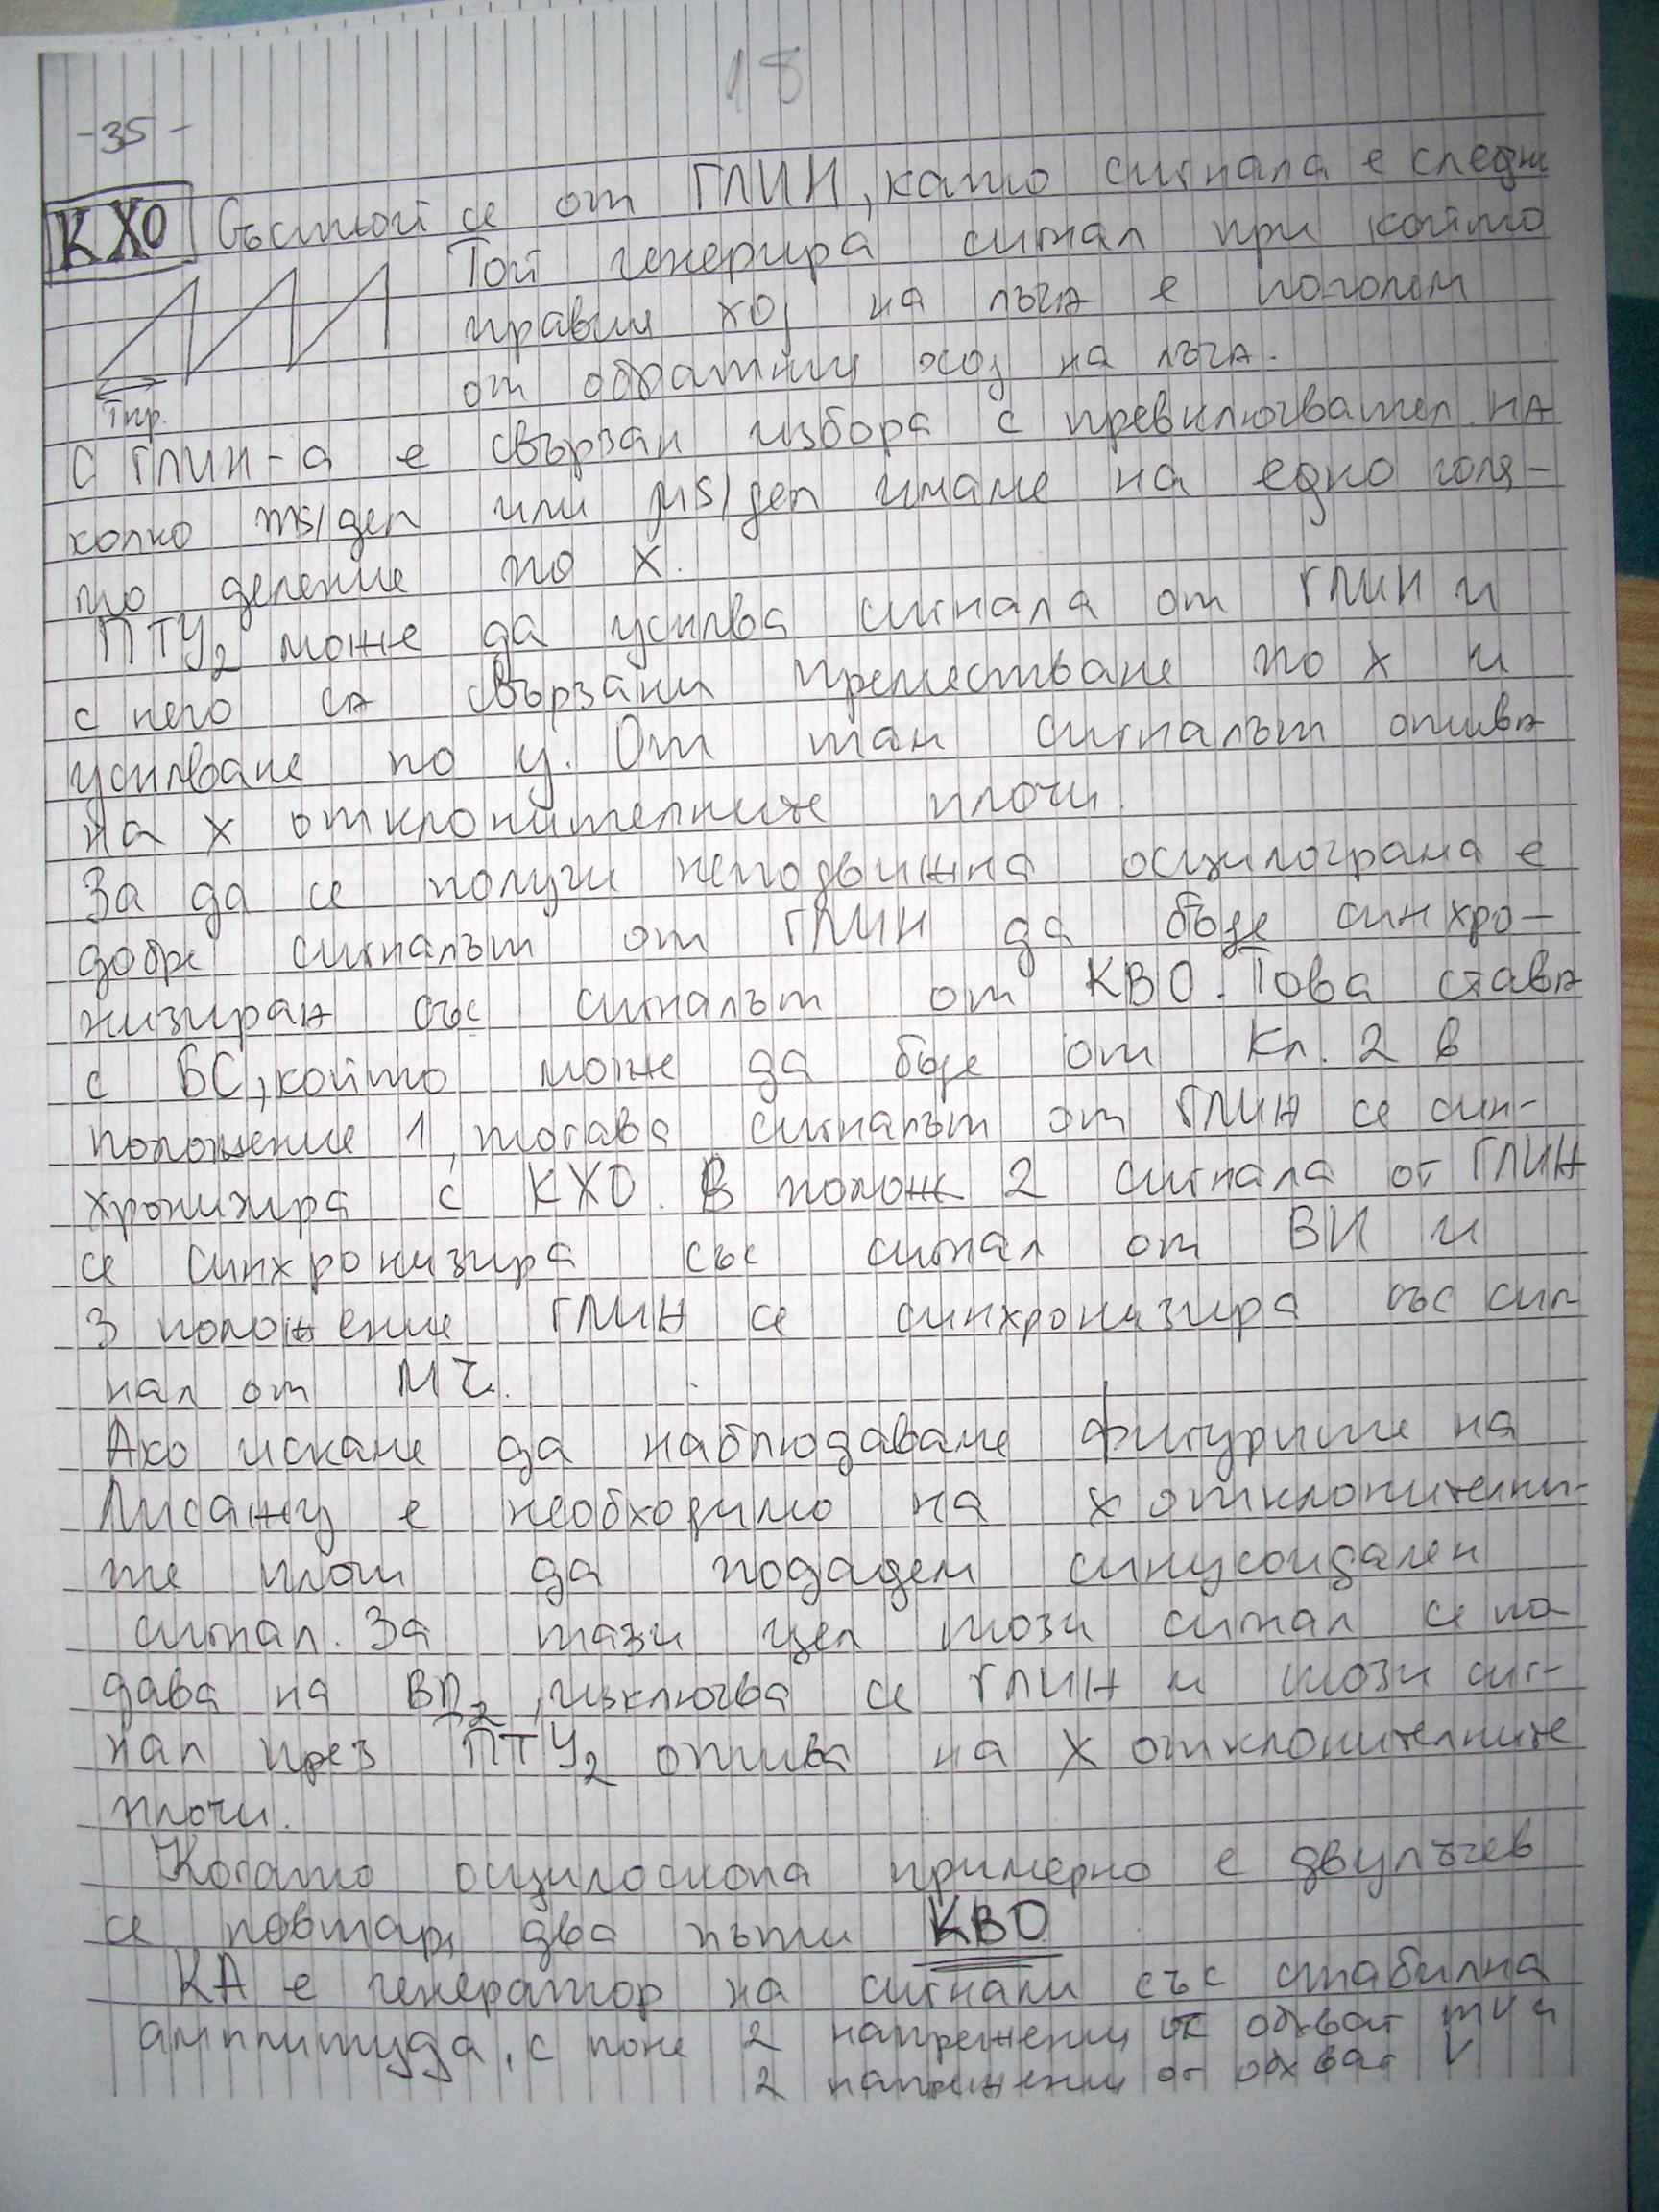 18
-35-
КХО Състой се от ГЛИН, като сигнала е следн
Той генерира сигнал при който
правия ход на лъча е поголем
от обратния ход на лъча.
Тпр.
С ГЛИН-а е свързан избора с превключвател на
колко ms/дел или μs/дел имаме на едно голя-
мо деление по X.
ПТУ2 може да усилва сигнала от ГЛИН и
с него са свързани преместване по X и
усилване по y. От там сигналът отива
на X отклонителните плочи.
За да се получи неподвижна осцилограма е
добре сигналът от ГЛИН да бъде синхро-
низиран със сигналът от КВО. Това става
с БС, който може да бъде от Кл. 2 в
положение 1, тогава сигналът от ГЛИН се син-
хронизира с КХО. В полож 2 сигнала от ГЛИН
се синхронизира със сигнал от ВИ и
3 положение ГЛИН се синхронизира със сиг-
нал от МЧ.
Ако искаме да наблюдаваме фигурите на
Лисажу е необходимо на X отклонителни-
те плочи да подадем синусоидален
сигнал. За тази цел този сигнал се по
дава на ВД2, изключва се ГЛИН и този сиг-
нал през ПТУ2 отива на X отклонителните
плочи.
Когато осцилоскопа примерно е двулъчев
се повтаря два пъти КВО
КА е генератор на сигнали със стабилна
амплитуда, с поне 2 напрежения от обхват mV и
2 напрежения от обхват V